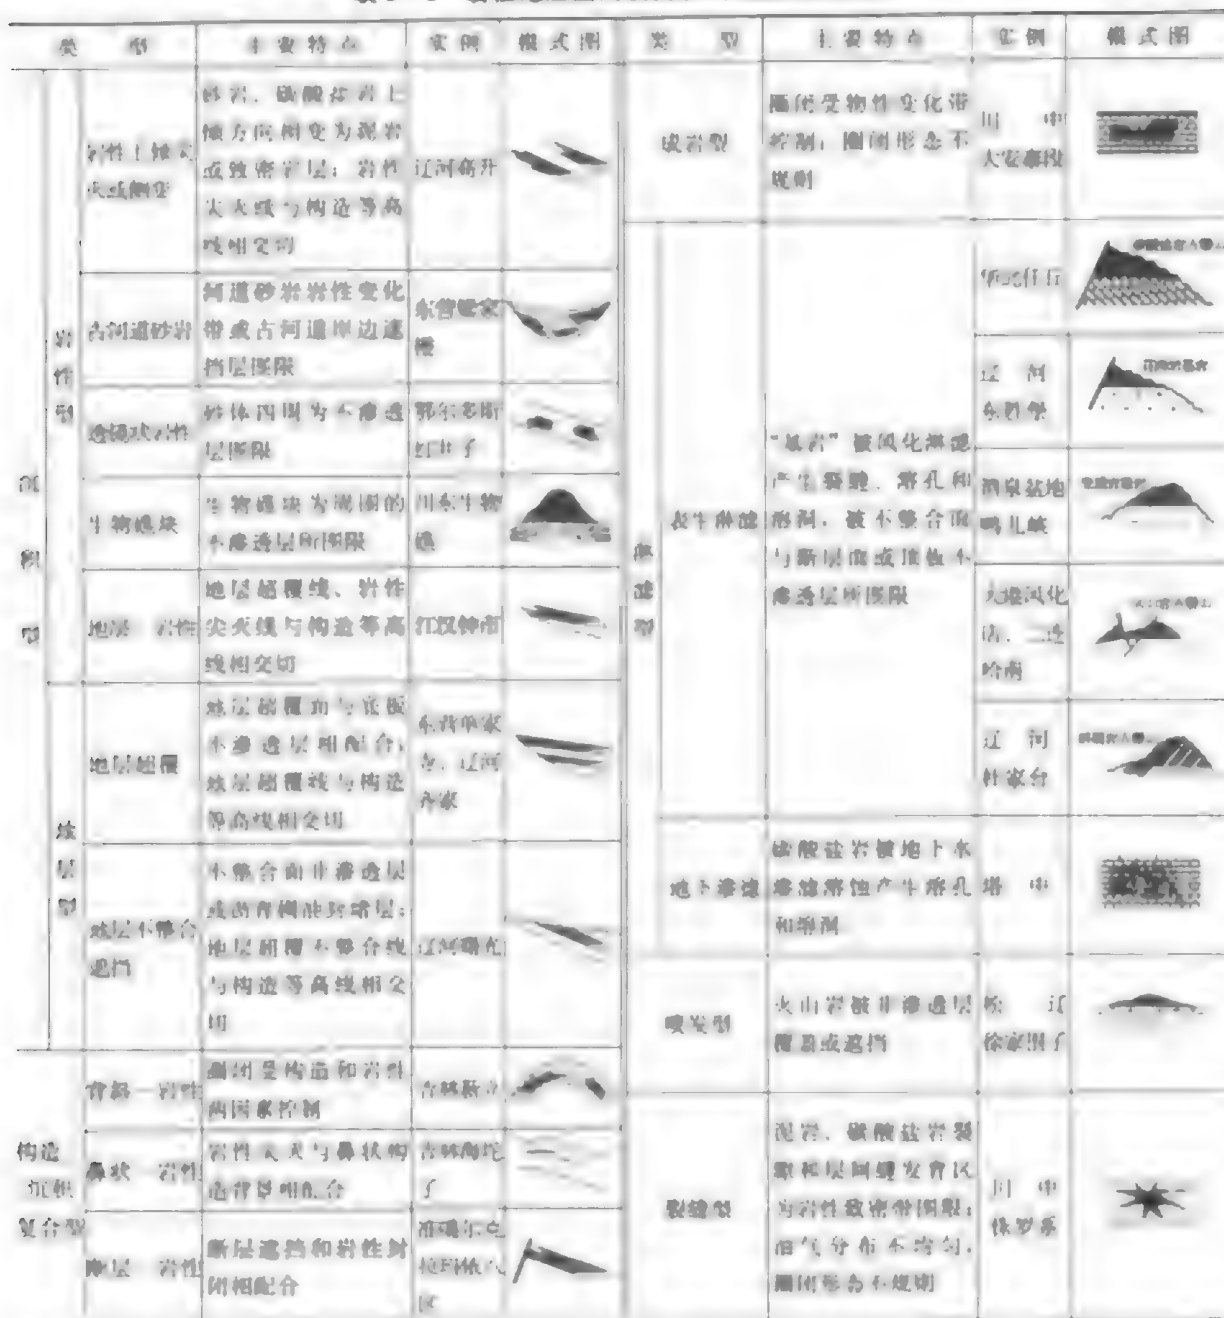 类 型 主要特点 实例 模式图 类 型 主要特点 实例 模式图
沉
积
型
岩
性
型
岩性上倾尖
灭或侧变
砂岩、碳酸盐岩上
倾方向相变为泥岩
或致密岩层；岩性
尖灭线与构造等高
线相交切
辽河高升
古河道砂岩
河道砂岩岩性变化
带或古河道岸边遮
挡层围限
东营梁家
楼
透镜状岩性
砂体四周为不渗透
层围限
鄂尔多斯
红井子
生物礁块
生物礁块为周围的
不渗透层所围限
川东生物
礁
地层—岩性
地层超覆线、岩性
尖灭线与构造等高
线相交切
江汉钟市
地
层
型
地层超覆
地层超覆面与底板
不渗透层相配合；
地层超覆线与构造
等高线相交切
东营单家
寺、辽河
齐家
地层不整合
遮挡
不整合面非渗透层
或沥青稠油封堵层；
地层超覆不整合线
与构造等高线相交
切
辽河曙光
构造
沉积
复合型
背斜—岩性
圈闭受构造和岩性
两因素控制
吉林新立
鼻状—岩性
岩性尖灭与鼻状构
造背景相配合
吉林海坨
子
断层—岩性
断层遮挡和岩性封
闭相配合
准噶尔克
拉玛依八
区
成岩型
圈闭受物性变化带
控制；圈闭形态不
规则
川 中
大安寨段
淋
滤
型
表生淋滤
"基岩"被风化淋滤
产生裂缝、溶孔和
溶洞，被不整合面
与断层面或顶板不
渗透层所围限
华北任丘
辽 河
东胜堡
酒泉盆地
鸭儿峡
火成风化
二连
哈南
辽 河
杜家台
地下渗滤
碳酸盐岩被地下水
渗滤溶蚀产生溶孔
和溶洞
塔 中
喷发型
火山岩被非渗透层
覆盖或遮挡
松 辽
徐家围子
裂缝型
泥岩、碳酸盐岩裂
隙和层间缝发育区
为岩性致密带围限；
油气分布不均匀，
圈闭形态不规则
川 中
侏罗系